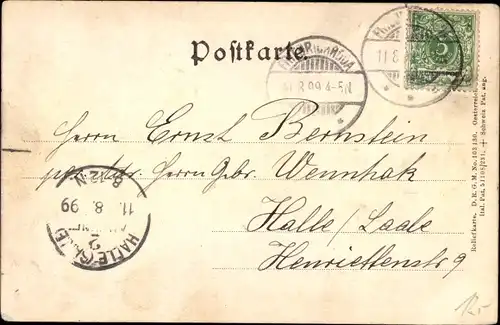 Postkarte.
FRIEDRICHRODA
11.8.99.4-5N
11.8
5
Herrn Ernst Bernstein
per Adr. Herren Gebr. Wennhak
Halle / Saale
Henriettenstr 9
HALLE (SAALE)
2
11. 8. 99
8-12 N.
Reliefkarte. D. R. G. M. No. 103130. Oesterreich
Ital. Pat. Schweiz Pat. ang.
12.-